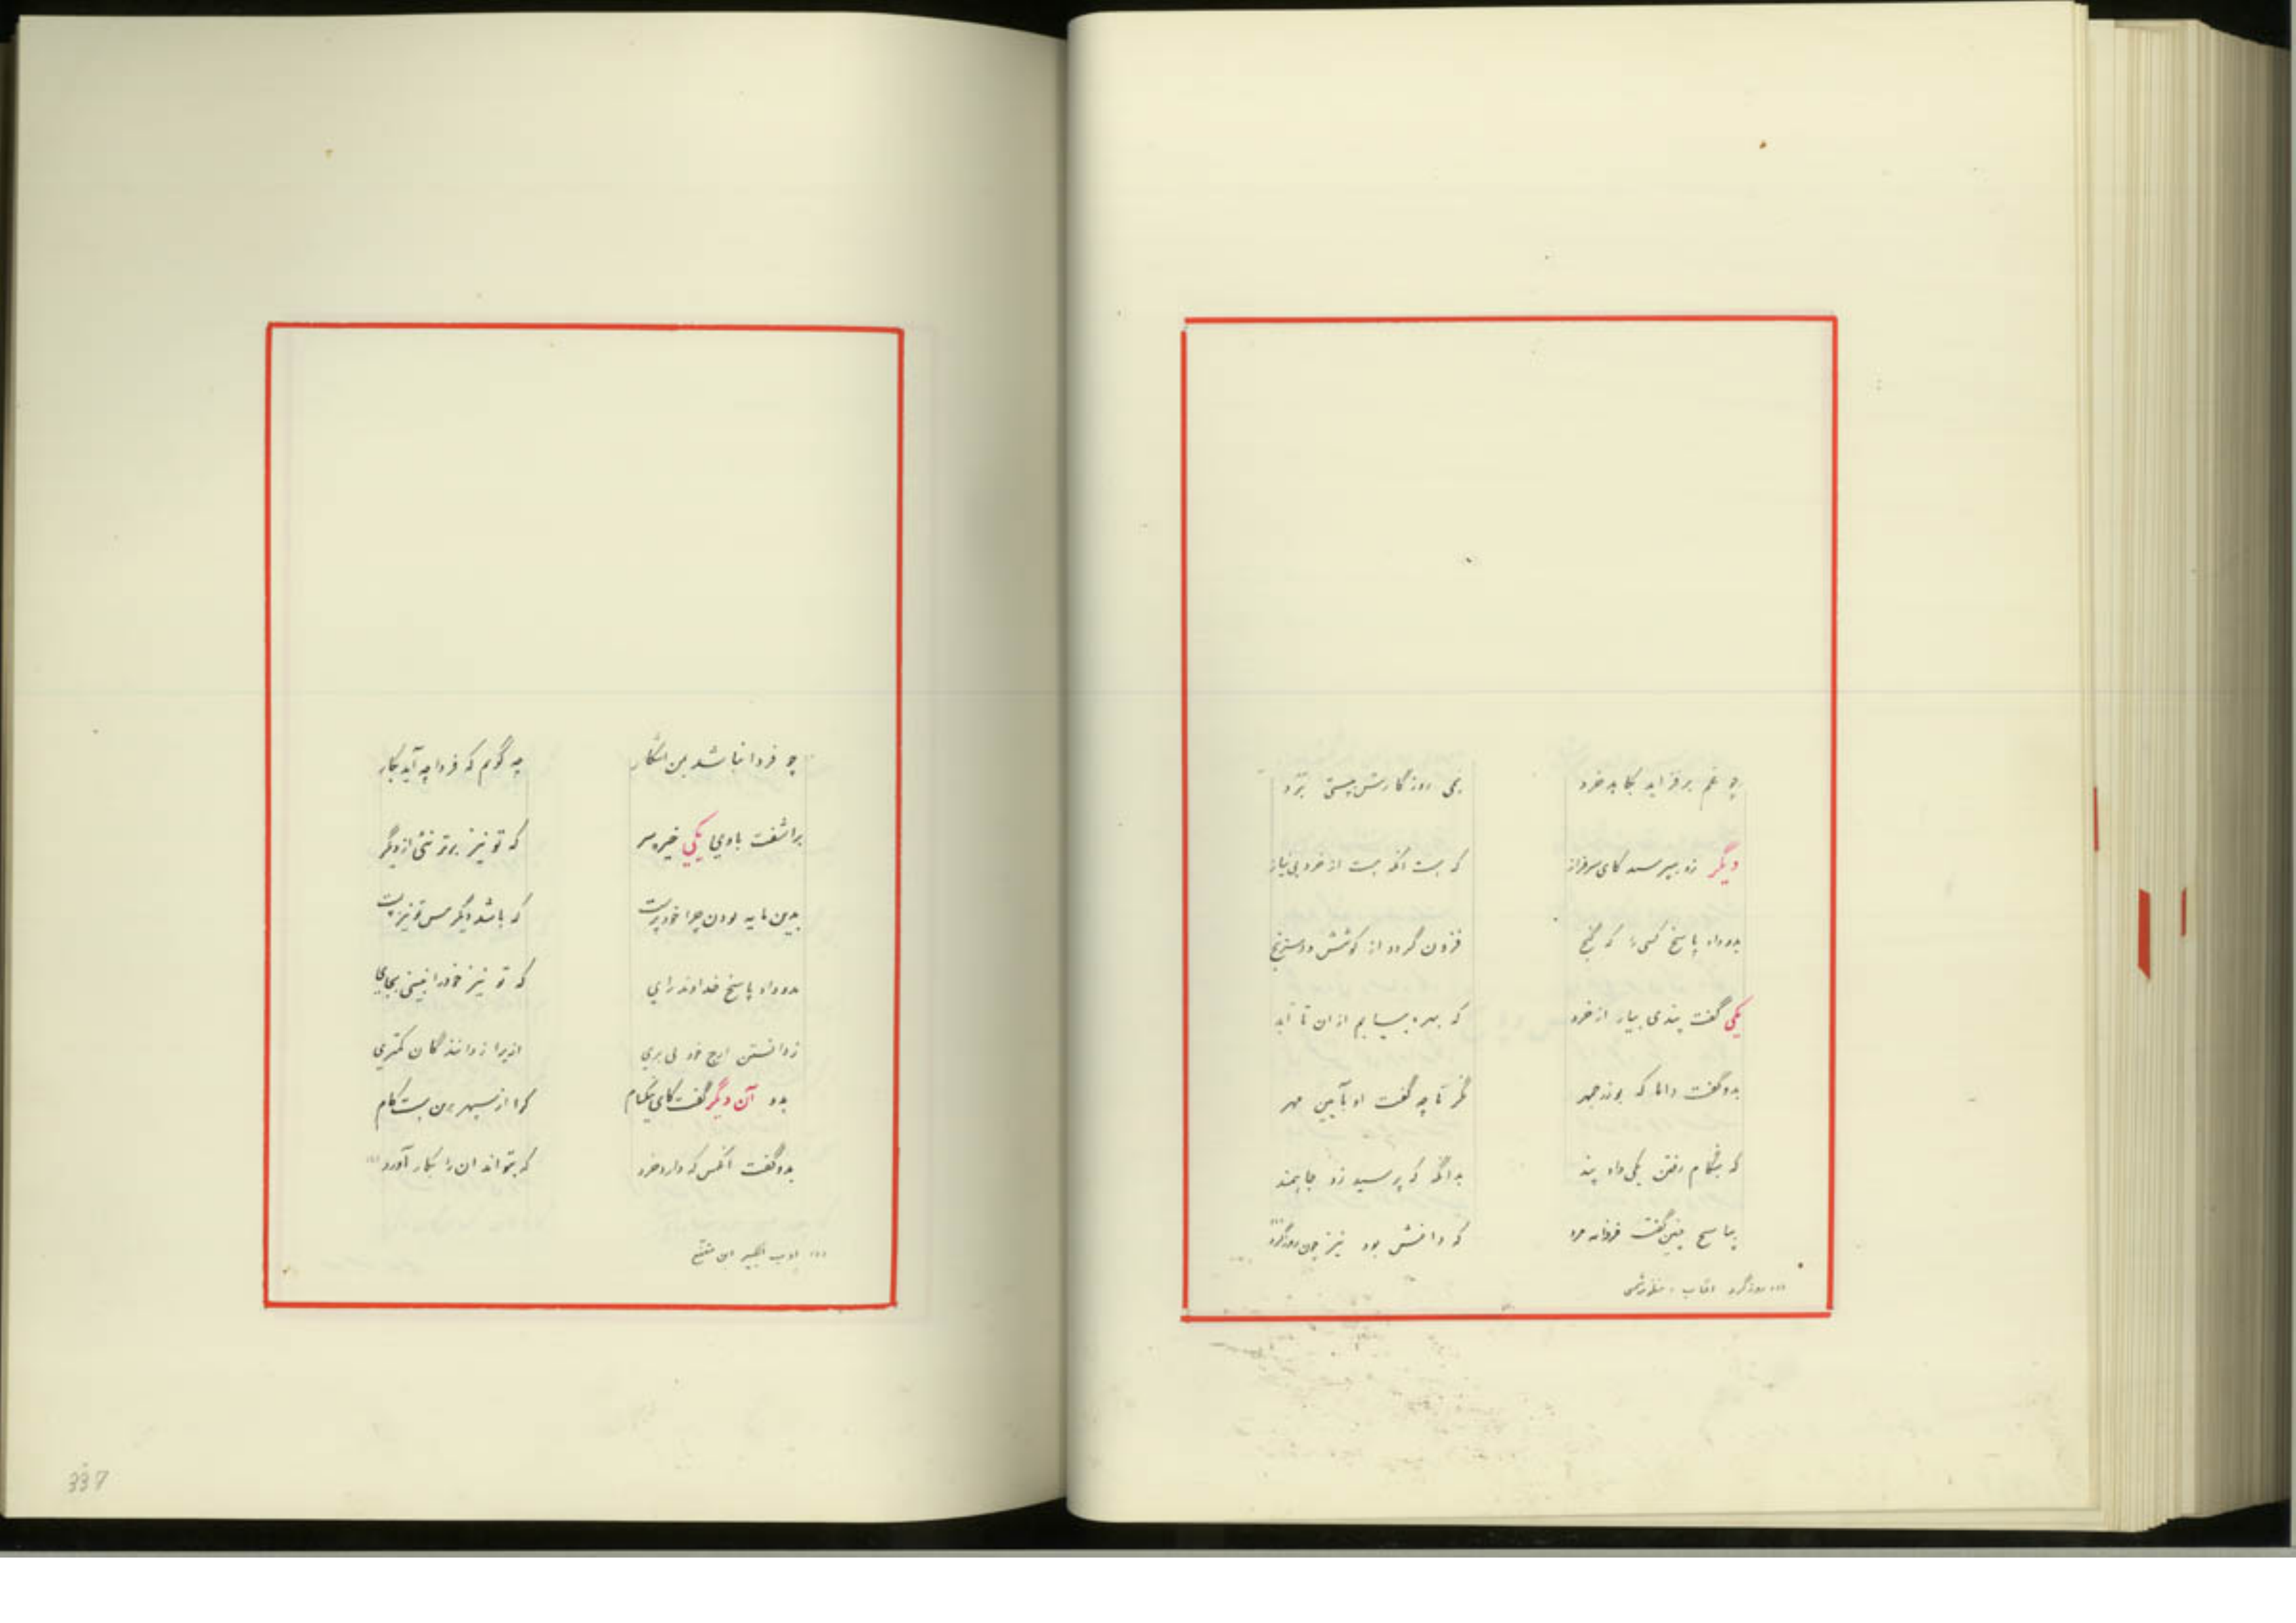 چو غم برفزاید بکاهد خرد همی روزگارش بپستی برد
دیگر زو بپرسید کای سرفراز که هست آنکه هست از خرد بی نیاز
بدو داد پاسخ کسی را که گنج فزون گردد از کوشش و دسترنج
یکی گفت پندی بیار از خرد که بهره بیابم از آن تا ابد
بدو گفت دانا که بوذرجمهر نگر تا چه گفت او بآیین مهر
که هنگام رفتن یکی داد پند بدانگه که پرسید زو
بپاسخ چنین گفت فرزانه مرد که دانش بود نیز چون روزگرد
روزگرد آفتاب
چو فردا نباشد بمن آشکار چه گویم که فردا چه آید بکار
براشفت باوی یکی خیره سر که تو نیز برتر نئی از دیگر
بدین مایه بودن چرا خودپرست که باشد دیگر کس تو نیز
بدو داد پاسخ خداوند رای که تو نیز خود را نبینی بجای
ز دانستن ارج خود ازیرا ز دانندگان کمتری
بدو آن دیگر گفت کای نیکنام کرا از سپهر برین هست کام
بدو گفت آنکس که دارد خرد که بتواند آن را بکار آورد
ادب الکبیر ابن مقفع
337